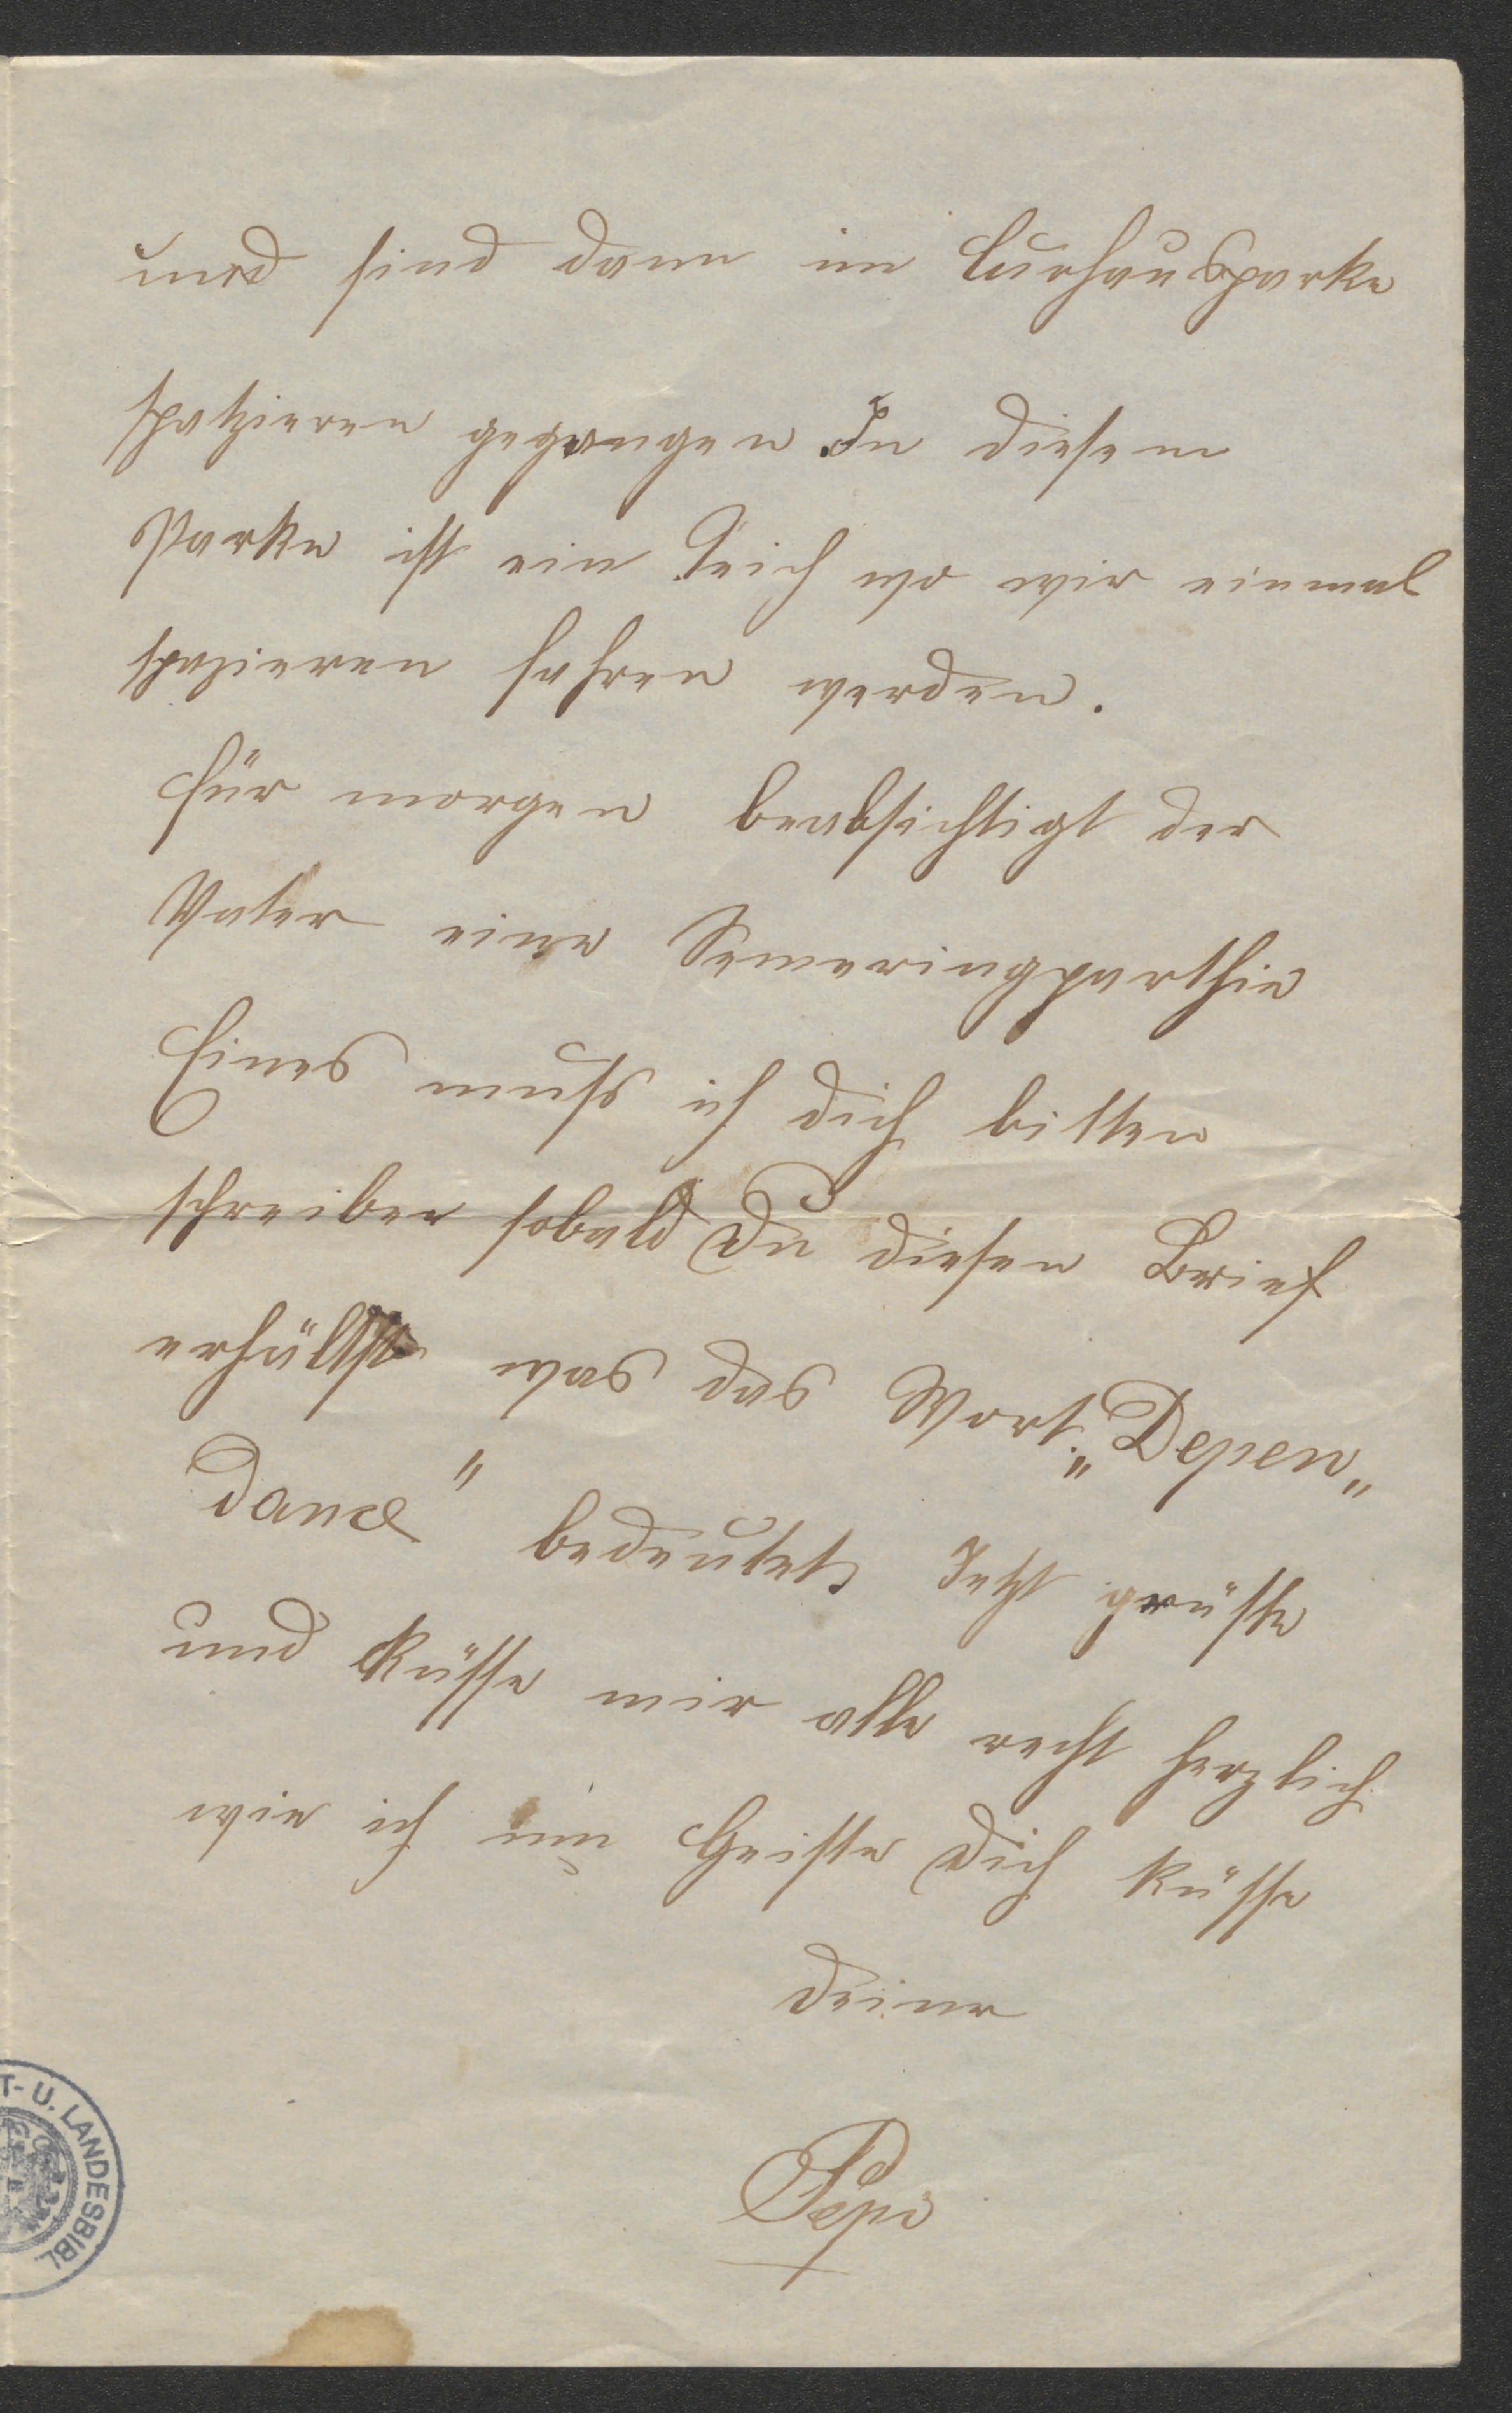 und sind dann im Curhausparke
spatzieren gegangen In diesem
Parke ist ein Teich wo wir einmal
spazieren fahren werden.
Für morgen beabsichtigt der
Vater eine Semeringparthie
Eines muß ich dich bitten
schreiben sobald Du diesen Brief
erhältst was das Wort „Depen„
dance" bedeutet Jetzt grüße
und küsse mir alle recht herzlich
wie ich im Geiste Dich küsse
Deine
Pepi
T- U. LANDESBIBL.